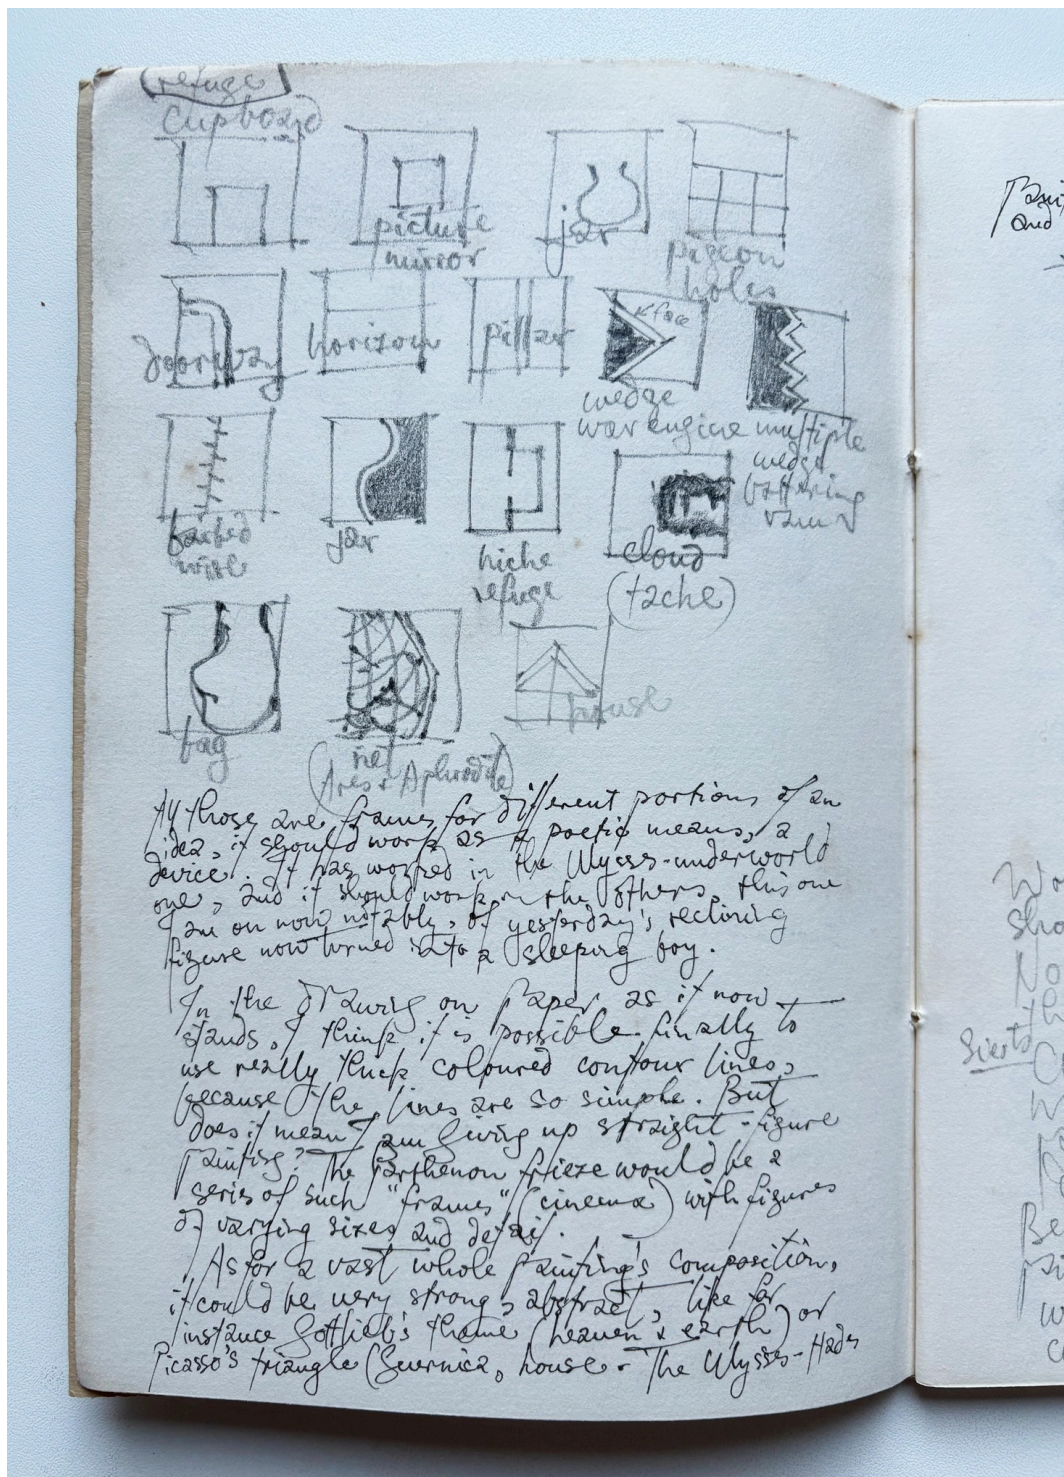 refuge
cupboard
picture
mirror
jar
pigeon
holes
doorway
horizon
pillar
face
wedge
war engine
multiple
wedge
battering
ram
barbed
wire
jar
niche
refuge
cloud
(tache)
bag
net
(Ares + Aphrodite)
house
All those are frames for different portions of an
idea, it should work as a poetic means, a
device. It has worked in the Ulysses-underworld
one, and it should work in the others, this one
I am on now notably, of yesterday's reclining
figure now turned into a sleeping boy.
In the drawing on paper, as it now
stands, I think it is possible finally to
use really thick coloured contour lines,
because the lines are so simple. But
does it mean I am giving up straight-figure
painting? The Parthenon frieze would be a
series of such "frames" (cinema) with figures
of varying sizes and detail.
As for a vast whole painting's composition,
it could be very strong, abstract, like for
instance Gottlieb's theme (heaven & earth) or
Picasso's triangle (Guernica, house. The Ulysses-Hades
and
Siesta